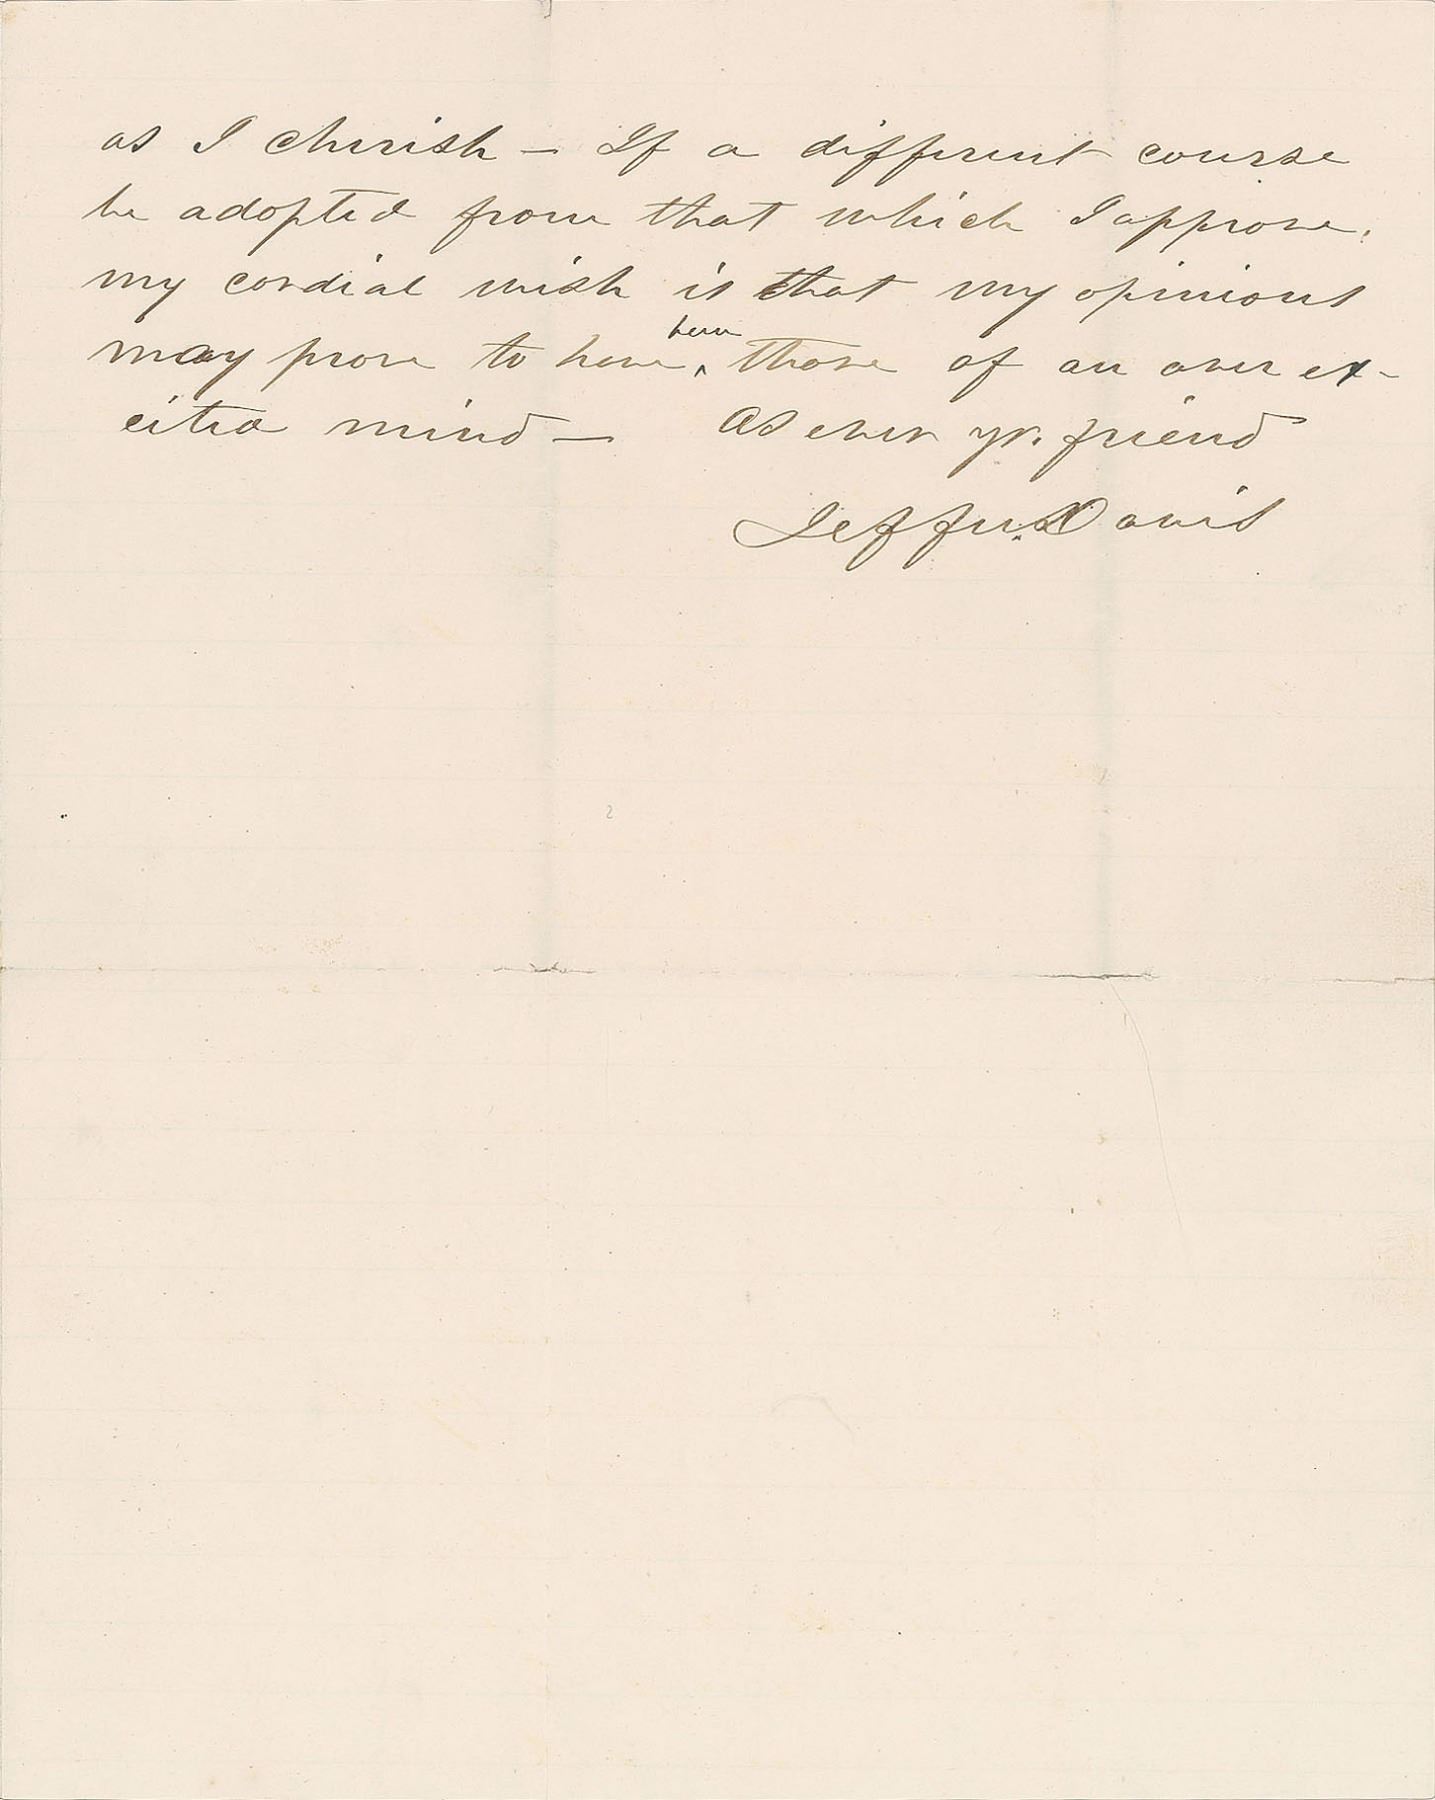 as I cherish — If a different course
be adopted from that which I approve,
my cordial wish is that my opinions
may prove to have ^been those of an over ex-
cited mind — As ever yr. friend
Jeffn. Davis